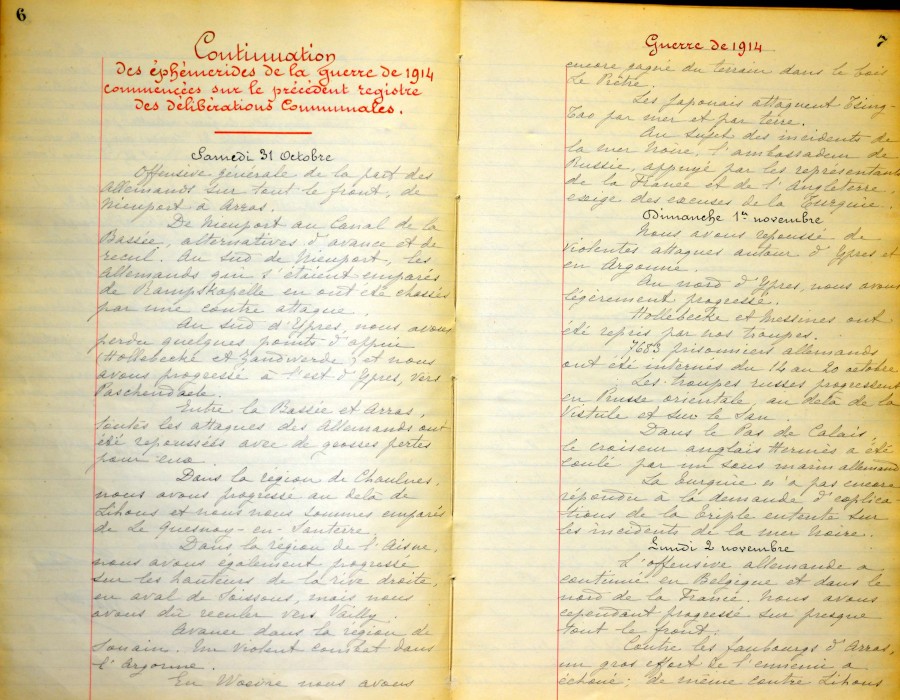 6
Continuation
des éphémerides de la guerre de 1914
commencées sur le précédent registre
des délibérations Communales.
Samedi 31 Octobre
Offensive générale de la part des
Allemands sur tout le front, de
Nieuport à Arras.
De Nieuport au Canal de la
Bassée, alternatives d'avance et de
recul. Au Sud de Nieuport, les
Allemands qui s'étaient emparés
de Rampskapelle en ont été chassés
par une contre attaque.
Au Sud d'Ypres, nous avons
perdu quelques points d'appui
(Hollebecke et Zandverde) et nous
avons progressé à l'est d'Ypres, vers
Paschendaele.
Entre la Bassée et Arras,
toutes les attaques des Allemands ont
été repoussées avec de grosses pertes
pour eux.
Dans la région de Chaulnes,
nous avons progressé au delà de
Lihons et nous nous sommes emparés
de Le Quesnoy-en-Santerre.
Dans la région de l'Aisne,
nous avons également progressé
sur les hauteurs de la rive droite,
en aval de Soissons, mais nous
avons dû reculer vers Vailly.
Avance dans la région de
Souain. Un violent combat dans
l'Argonne.
En Woëvre nous avons
Guerre de 1914
7
encore gagné du terrain dans le bois
Le Prêtre.
Les Japonais attaquent Tsing-
Tao par mer et par terre.
Au sujet des incidents de
la mer Noire, l'ambassadeur de
Russie, appuyé par les représentants
de la France et de l'Angleterre,
exige des excuses de la Turquie.
Dimanche 1er novembre
Nous avons repoussé de
violentes attaques autour d'Ypres et
en Argonne.
Au nord d'Ypres, nous avons
légèrement progressé.
Hollebecke et Messines ont
été repris par nos troupes.
7683 prisonniers allemands
ont été internés du 14 au 20 octobre
Les troupes russes progressent
en Prusse orientale, au delà de la
Vistule et sur le San.
Dans le Pas de Calais,
le croiseur anglais Hermès a été
coulé par un sous marin allemand
La Turquie n'a pas encore
répondu à la demande d'explica-
tions de la Triple entente sur
les incidents de la mer Noire.
Lundi 2 novembre
L'offensive allemande a
continué en Belgique et dans le
nord de la France. Nous avons
cependant progressé sur presque
tout le front.
Contre les faubourgs d'Arras,
un gros effort de l'ennemi a
échoué; de même contre Lihons